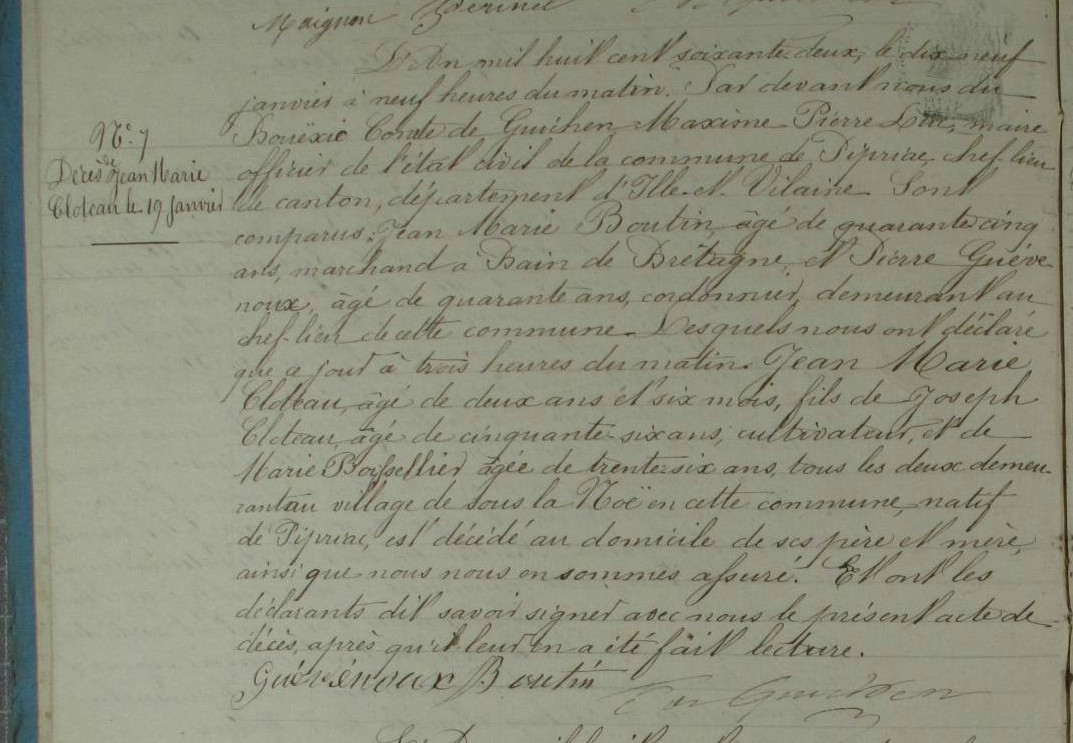 Maignan Perinel
L'An mil huit cent soixante-deux, le dix-neuf
janvier à neuf heures du matin. Par devant nous du
Bouëxic Comte de Guichen Maxime Pierre Luc, maire
officier de l'état civil de la commune de Pipriac, chef-lieu
de canton, département d'Ille-et-Vilaine. Sont
comparus: Jean Marie Boutin, âgé de quarante cinq
ans, marchand à Bain de Brétagne, et Pierre Guéve-
noux, âgé de quarante ans, cordonnier, demeurant au
chef-lieu de cette commune. Lesquels nous ont déclaré
que ce jour à trois heures du matin. Jean Marie
Cloteau, âgé de deux ans et six mois, fils de Joseph
Cloteau, âgé de cinquante-six ans, cultivateur, et de
Marie Boissellier âgée de trente-six ans, tous les deux demeu-
rant au village de sous la Noë en cette commune, natif
de Pipriac, est décédé au domicile de ses père et mère,
ainsi que nous nous en sommes assuré. Et ont les
déclarants dit savoir signer avec nous le présent acte de
décès, après qu'il leur en a été fait lecture.
Guévénoux Boutin Cte de Guichen
N.º 7
Décès de Jean Marie
Cloteau le 19 Janvier